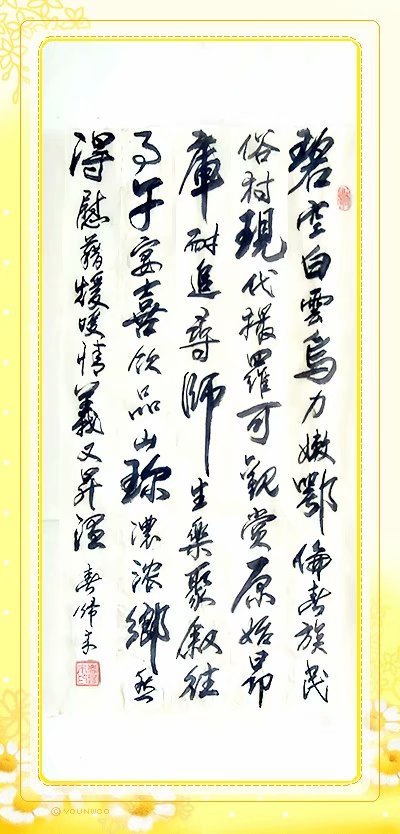 碧空白雲烏力嫩鄂倫春族民
俗村現代撮羅可觀賞原始昂
庫耐追尋師生樂聚敘往
事午宴喜飲品山珍濃濃鄉愁
得慰藉暖情義又昇溫
春
© YOUNWOO